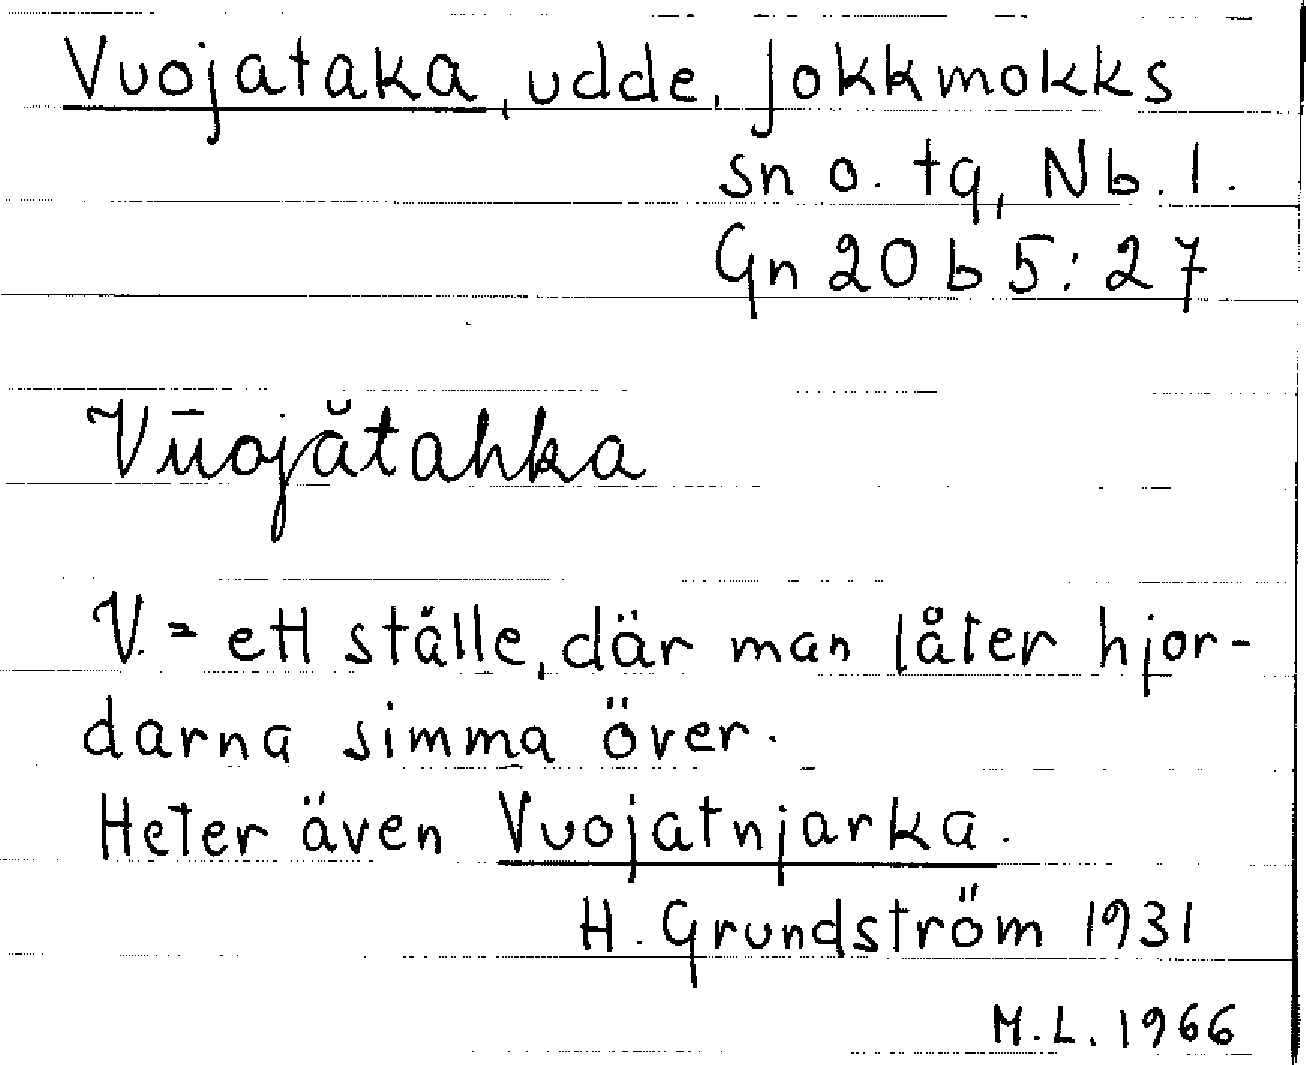 Vuojataka, udde, Jokkmokks
sn o. tg, Nb. l.
Gn 20 b 5:27
Vūojătahka
V. = ett ställe, där man låter hjor-
darna simma över.
Heter även Vuojatnjarka.
H. Grundström 1931
M.L. 1966